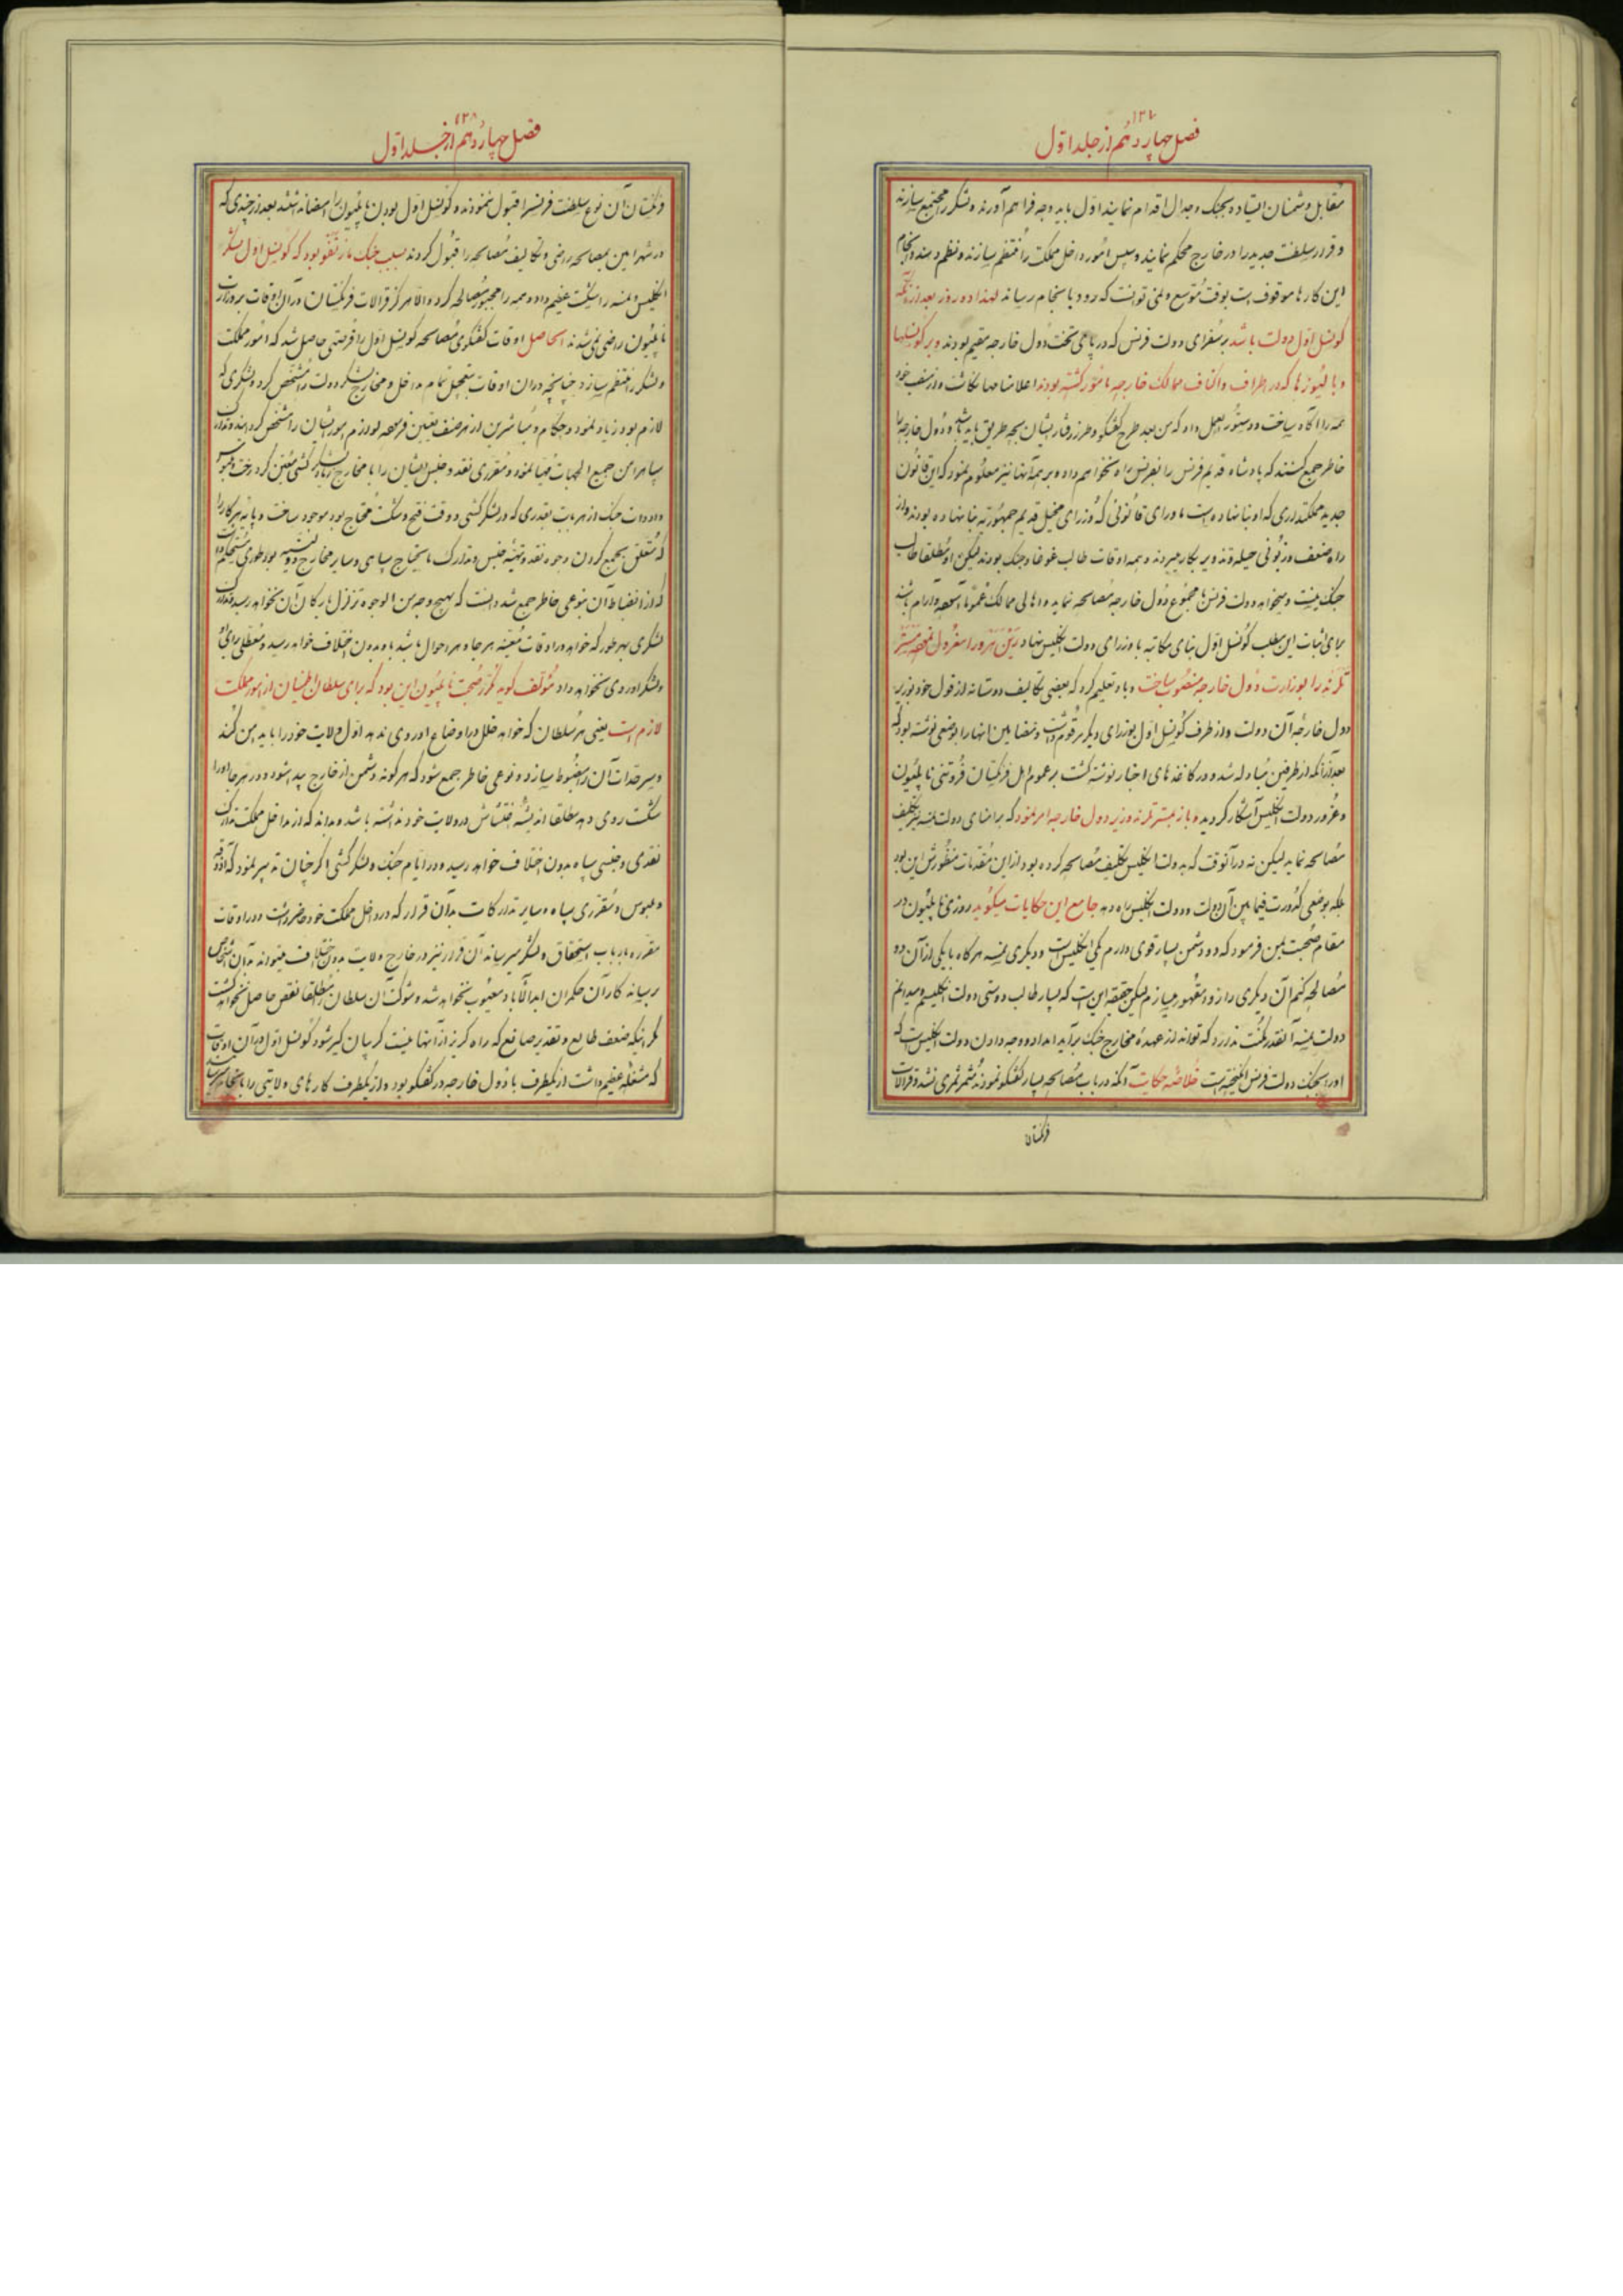 ۱۳۷
فصل چهاردهم از جلد اوّل
مقابل دشمنان ایستاده بجنک و جدال اقدام نمایند اوّل باید وجه فراهم آورند و لشکر را مجتمع سازند
و قرار سلطنت جدید را در خارج محکم نمایند و سپس امور داخل مملکت را منتظم سازند و نظم دهند و انجام
این کارها موقوف است بوقت مُوسع و نمی توانست که زود بانجام رساند لهذا ده روز بعد از آنکه
کونسل اوّل دولت باشد بر سفرای دولت فرنس که در پای تخت دُول خارجه مقیم بودند و بر کونسلها
و بالیوزها که در اطراف و اکناف ممالک خارجه مامور کشته بودند اعلامنامها نکاشت و از منصب خود
همه را آکاه ساخت و دستور العمل داد که من بعد طرح کفتکو و طرز رفتار ایشان بچه طریق باید باشد و دُول خارجه را
خاطر جمع کنند که پادشاه قدیم فرنس را بفرنس راه نخواهم داد و بر همه آنها نیز معلوم نمود که این قانون
جدید مملکتداری که او بنا نهاده است ماورای قانونی که وزرای قدیم جمهوریه بنا نهاده بودند و از
راه ضعف و زبونی حیله و تزویر بکار میبردند و همه اوقات طالب غوغا و جنک بودند لیکن او مطلقا طالب
جنک نیست و میخواهد دولت فرنس با مجموع دُول خارجه مصالحه نماید و اهالی ممالک عموما آسوده و آرام باشند
برای اثبات این مطلب کونسل اوّل بنای مکاتبه با وزرای دولت انکلیس نهاد
را بوزارت دُول خارجه منصوب ساخت و باو تعلیم کرد که بعضی تکالیف دوستانه از قول خود بوزیر
دول خارجه آن دولت و از طرف کونسل اوّل بوزرای دیکر مرقوم داشت و مضامین انها را بوضعی نوشته بود که
بعد از آنکه از طرفین مُبادله شد و در کاغذهای اخبار نوشته کشت بر عموم اهل فرنکستان فروتنی ناپلیون
و غرور دولت انکلیس آشکار کردید و باز بمستر تلرند وزیر دول خارجه امر نمود که بر امنای دولت نمسه نیز تکلیف
مصالحه نماید لیکن نه در آنوقت که بدولت انکلیس تکلیف مصالحه کرده بود از این مقدمات منظورش این بود
بلکه بوضعی کدورت فیما بین آن دولت و دولت انکلیس راه دهد جامع این حکایات میکوید روزی ناپلیون در
مقام صحبت بمن فرمود که دو دشمن بسیار قوی دارم یکی انکلیس است و دیکری نمسه هرکاه با یکی از آن دو
مُصالحه کنم آن دیکری را زود مقهور میسازم لیکن حقیقه این است که بسیار طالب دوستی دولت انکلیسم و میدانم
دولت نمسه آنقدر مکنت ندارد که تواند از عهدهٔ مخارج جنک برآید امداد و وجه دادن دولت انکلیس است که
او را بجنک دولت فرنس انکیخته است خلاصه حکایت آنکه در باب مُصالحه بسیار کفتکو نمودند مثمر ثمری نشد و قرالات
فرنکستان
۱۳۸
فصل چهاردهم از جلد اوّل
فرنکستان آن نوع سلطنت فرنس را قبول ننمودند و کونسل اوّل بودن ناپلیون را امضا نداشتند بعد از چندی که
در شهر امین بمصالحه راضی و تکالیف مصالحه را قبول کردند بسبب جنک مارنقو بود که کونسل اوّل لشکر
انکلیس و نمسه را شکست عظیم داد و همه را مجبور بمصالحه کرد و الّا هرکز قرالات فرنکستان در آن اوقات بر وزارت
ناپلیون راضی نمی شدند الحاصل اوقات کفتکوی مصالحه کونسل اوّل را فرصتی حاصل شد که امور مملکت
و لشکر را منتظم سازد چنانچه در آن اوقات بتعجیل تمام مداخل و مخارج لشکر و دولت را مشخص کرد و لشکری که
لازم بود زیاد نمود و حکام و مباشرین از هر صنف تعیین فرمود و لوازم امور ایشان را مشخص کردانید و تدارک
سپاه را من جمیع الجهات مهیا نمود و مقرری نقد و جنس ایشان را با مخارج زیاد لشکر کشی معین کرد رخت و ملبوس
و ادوات جنک از هر بابت بقدری که در لشکر کشی و وقت فتح و شکست محتاج بود موجود ساخت و پایه هر کار را
که متعلق بجمع کردن وجوه نقد و تهیهٔ جنس و تدارک مایحتاج سپاهی و سایر مخارج بود بطوری مستحکم
که از انضباط آن بنوعی خاطر جمع شد دانست که بهیچ وجه من الوجوه تزلزل بارکان آن نخواهد رسید و تدارک
لشکری بهر طور که خواهد در اوقات معینه هر جا و هر احوال باشد باو بدون اختلاف خواهد رسید و معطلی برای او
و لشکر او روی نخواهد داد مُؤلف کوید مغز صحبت ناپلیون این بود که برای سلطان اطمینان از امور مملکت
لازم است یعنی هر سلطان که خواهد خلل در اوضاع او روی ندهد اوّل ولایت خود را باید امن کند
و سرحدات آن را مضبوط سازد و نوعی خاطر جمع شود که هر کونه دشمن از خارج پیدا شود و در هر جا او را
شکست روی دهد مطلقا اندیشهٔ اغتشاش در ولایت خود نداشته باشد و بداند که از مداخل مملکت تدارک
نقدی و جنسی سپاه بدون اختلاف خواهد رسید و در ایام جنک و لشکر کشی اکر چنان تدبیر نمود که آذوقه
و ملبوس و مقرری سپاه و سایر تدارکات بدان قرار که در داخل مملکت خود حاضر داشت و در اوقات
مقرره بارباب استحقاق و لشکر میرساند آن قرار نیز در خارج ولایت بدون اختلاف میتواند بدان اشخاص
برساند کار آن حکمران ابدالآباد معیوب نخواهد شد و شوکت آن سلطان را مطلقا نقص حاصل نخواهد کشت
مکر اینکه ضعف طالع و تقدیر صانع که راه کریز از آنها نیست کریبان کیر شود کونسل اوّل در آن اوقات
که مشغلهٔ عظیم داشت از یکطرف با دُول خارجه در کفتکو بود و از یکطرف کارهای ولایتی را بانجام میرساند